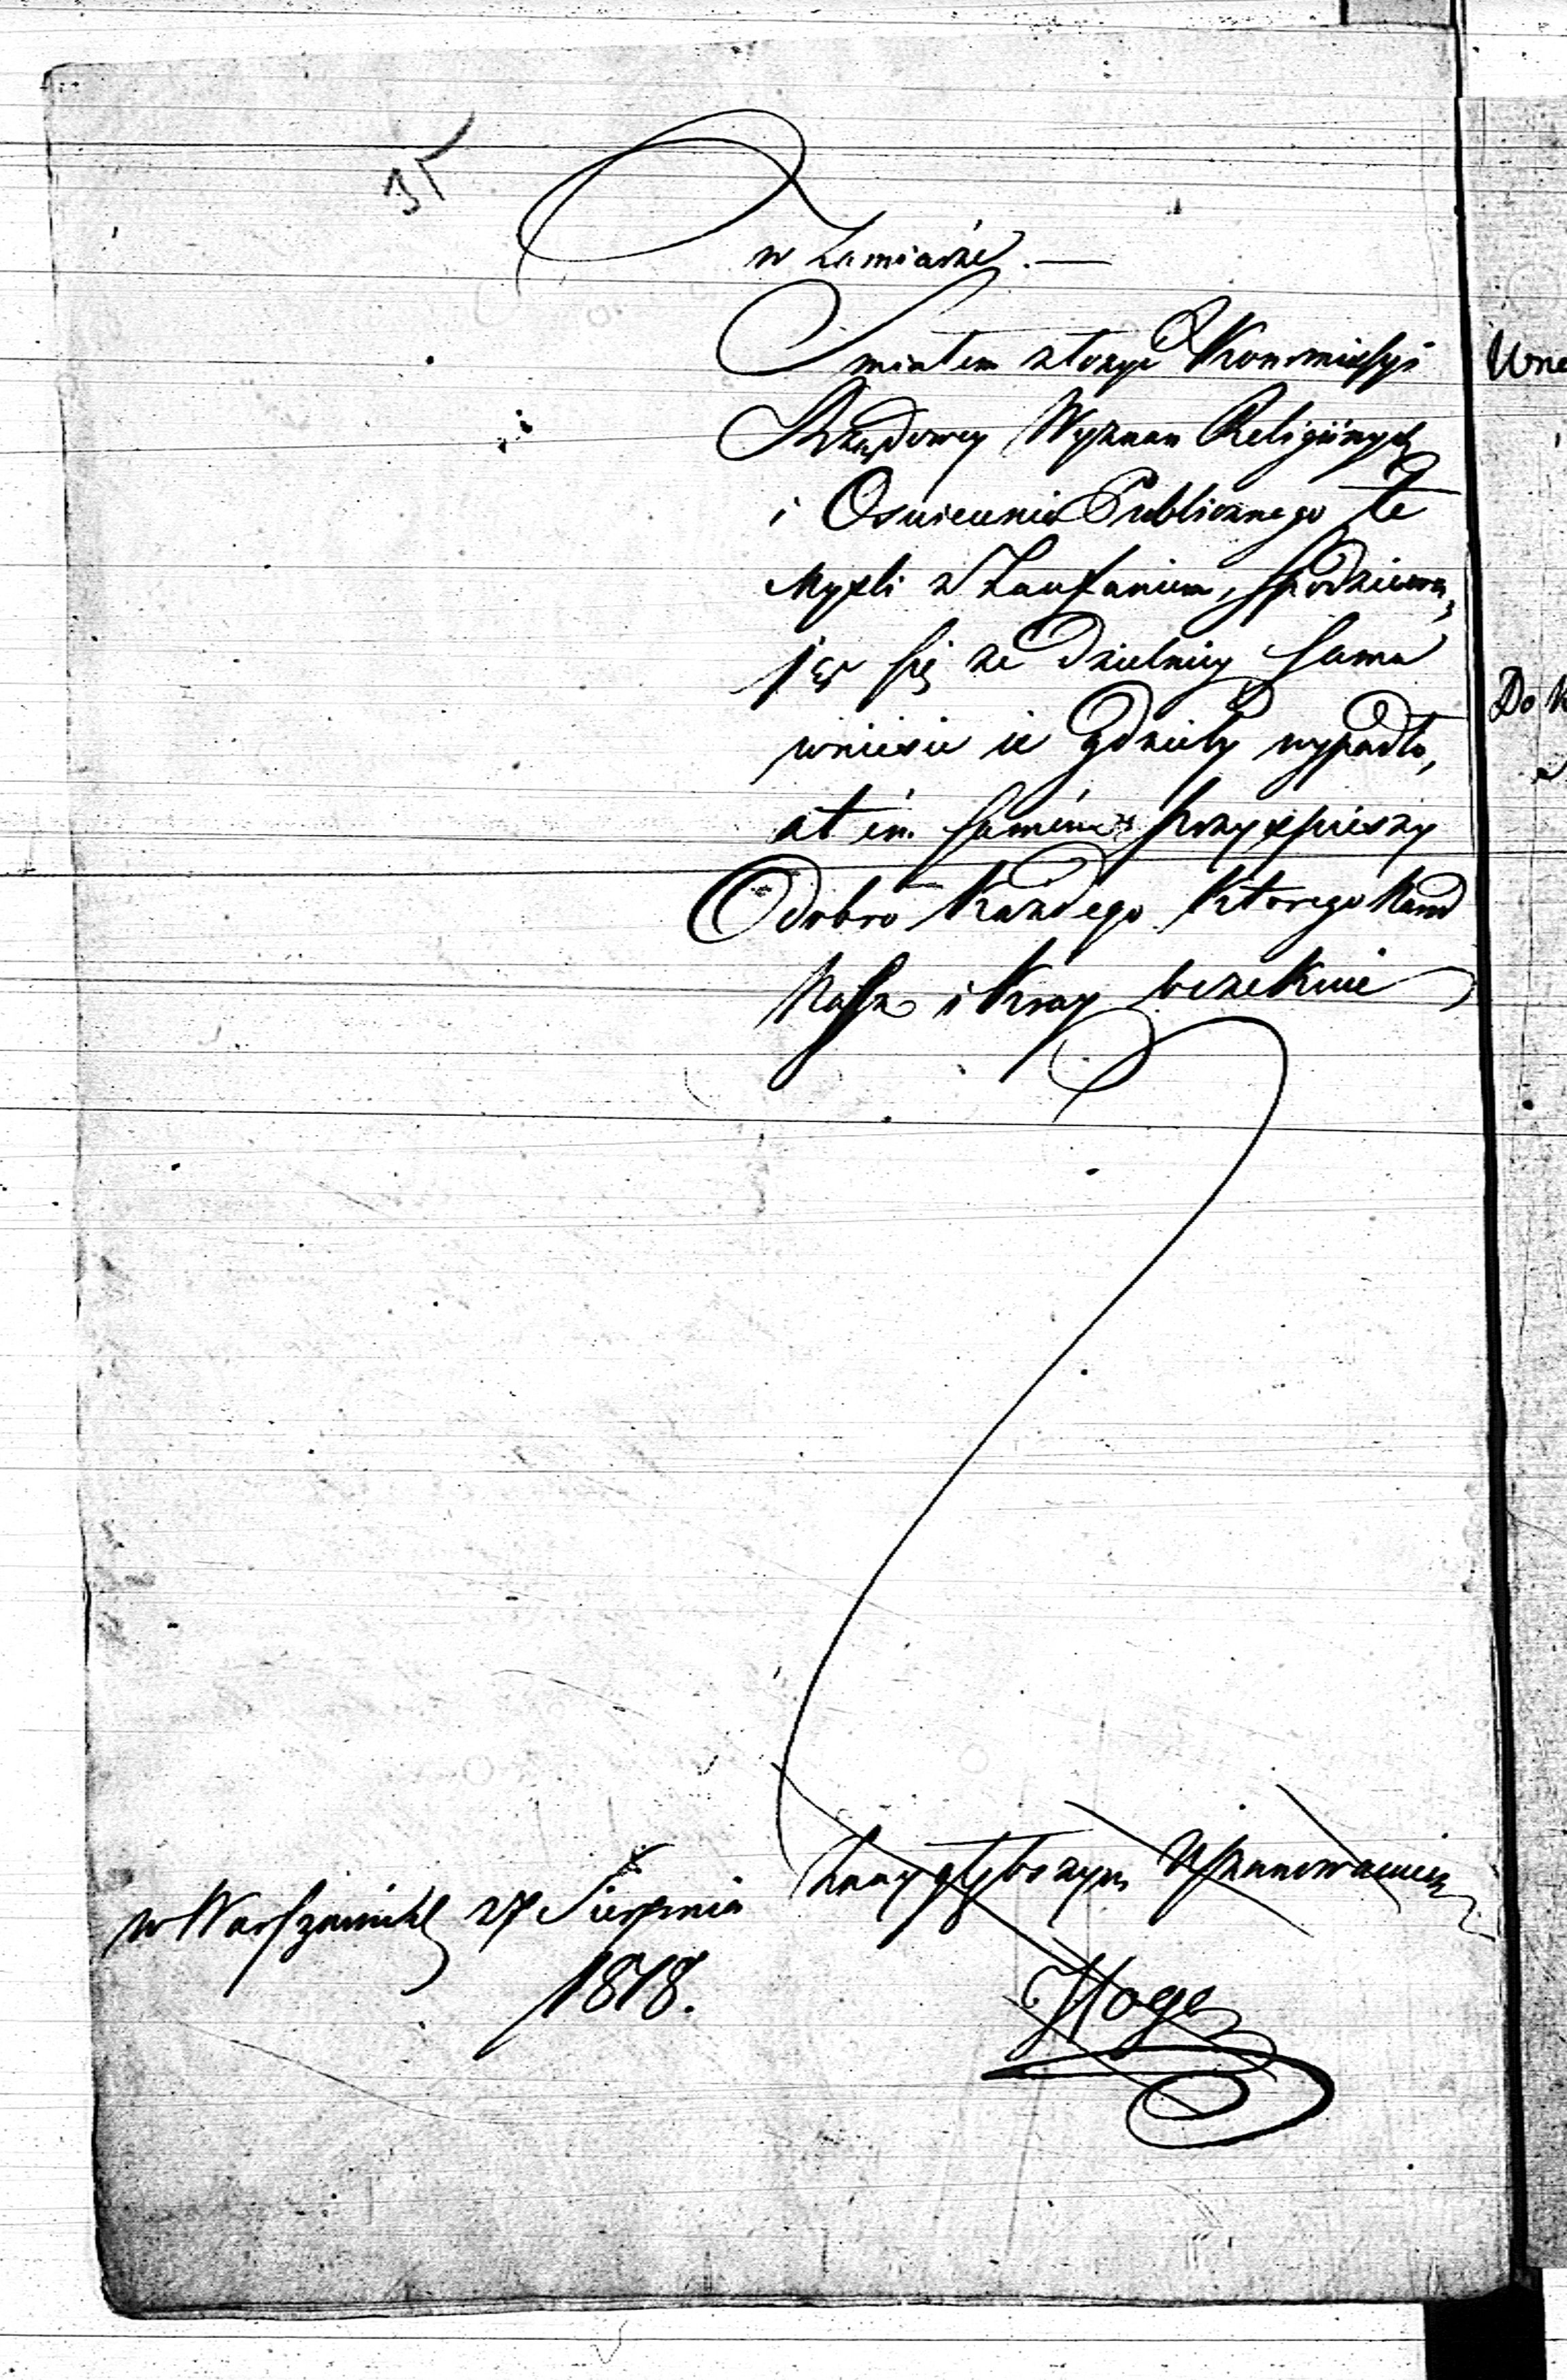 w Zamiarze. —
Smiałem złożyć Kommissyi
Rządowey Wyznan Religiinych
i Oswiecenia Publicznego te
Mysli z Zaufaniem, spodziewa,
jąc się że dzielniey sama
wniesie ie gdzieby wypadło,
a tém samém przyspieszy
dobro Każdego Którego Rząd
Nasz i Kray
w Warszawie 27 Sierpnia
1818.
Z naygłębszym Uszanowaniem
Hoge
Do